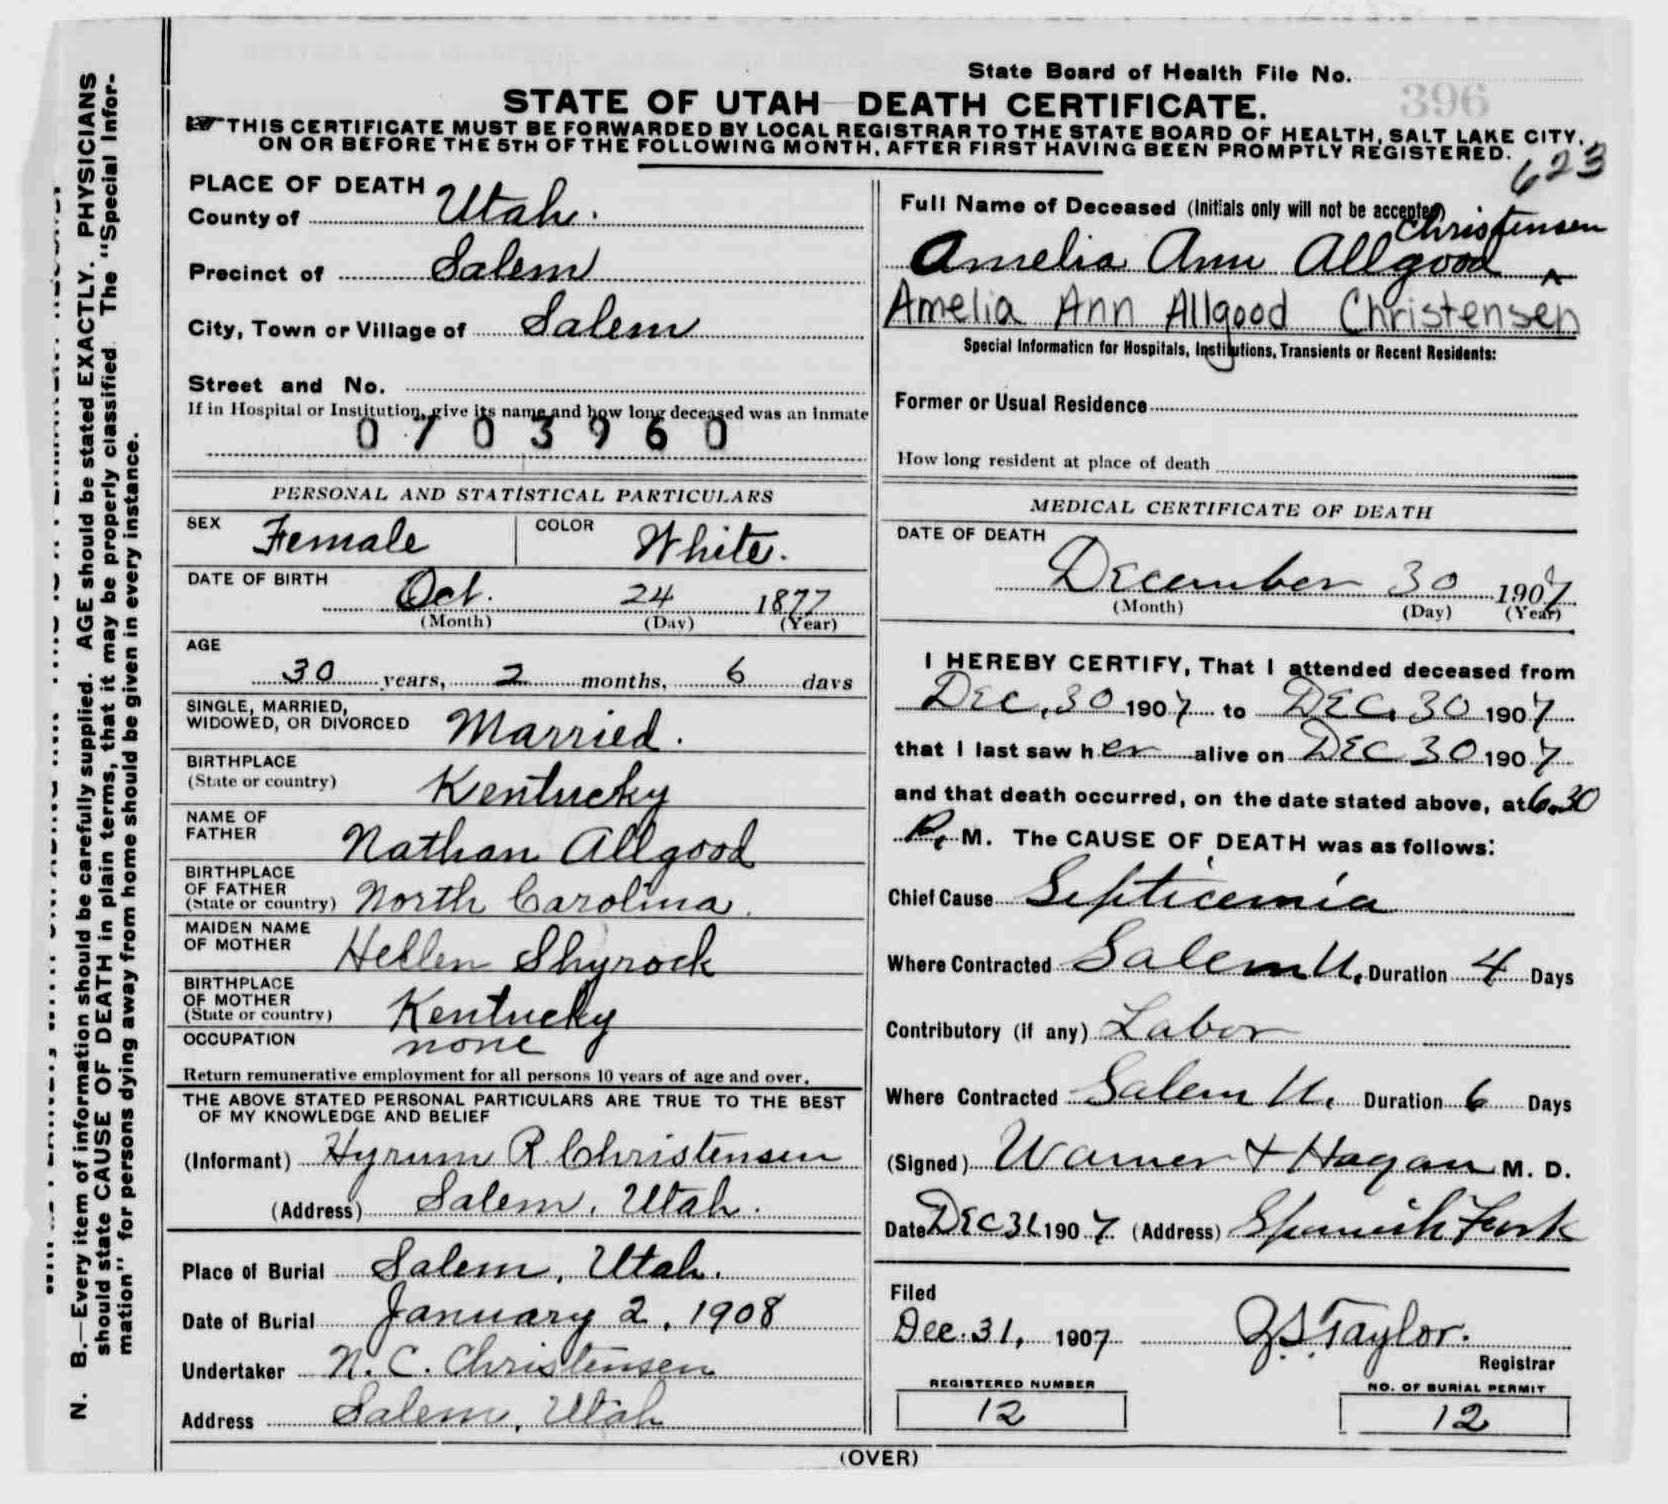 State Board of Health File No.
396
STATE OF UTAH DEATH CERTIFICATE.
THIS CERTIFICATE MUST BE FORWARDED BY LOCAL REGISTRAR TO THE STATE BOARD OF HEALTH, SALT LAKE CITY,
ON OR BEFORE THE 5TH OF THE FOLLOWING MONTH, AFTER FIRST HAVING BEEN PROMPTLY REGISTERED.
623
PLACE OF DEATH
County of Utah.
Precinct of Salem
City, Town or Village of Salem
Street and No.
If in Hospital or Institution, give its name and how long deceased was an inmate
0703960
PERSONAL AND STATISTICAL PARTICULARS
SEX Female COLOR White.
DATE OF BIRTH
Oct. 24 1877
(Month) (Day) (Year)
AGE
30 years, 2 months, 6 days
SINGLE, MARRIED,
WIDOWED, OR DIVORCED Married.
BIRTHPLACE
(State or country) Kentucky
NAME OF
FATHER Nathan Allgood
BIRTHPLACE
OF FATHER
(State or country) North Carolina.
MAIDEN NAME
OF MOTHER Hellen Shyrock
BIRTHPLACE
OF MOTHER
(State or country) Kentucky
OCCUPATION none
Return remunerative employment for all persons 10 years of age and over.
THE ABOVE STATED PERSONAL PARTICULARS ARE TRUE TO THE BEST
OF MY KNOWLEDGE AND BELIEF
(Informant) Hyrum R Christensen
(Address) Salem, Utah.
Place of Burial Salem, Utah.
Date of Burial January 2, 1908
Undertaker N. C. Christensen
Address Salem, Utah
Full Name of Deceased (Initials only will not be accepted)
Christensen
Amelia Ann Allgood ^
Amelia Ann Allgood Christensen
Special Information for Hospitals, Institutions, Transients or Recent Residents:
Former or Usual Residence
How long resident at place of death
MEDICAL CERTIFICATE OF DEATH
DATE OF DEATH
December 30 1907
(Month) (Day) (Year)
I HEREBY CERTIFY, That I attended deceased from
Dec. 30 1907 to Dec. 30 1907
that I last saw her alive on Dec 30 1907
and that death occurred, on the date stated above, at 6.30
P. M. The CAUSE OF DEATH was as follows:
Chief Cause Septicemia
Where Contracted Salem U. Duration 4 Days
Contributory (if any) Labor
Where Contracted Salem U. Duration 6 Days
(Signed) Warner & Hagan M. D.
Date Dec 31 1907 (Address) Spanish Fork
Filed
Dec. 31, 1907 Z.S. Taylor.
Registrar
REGISTERED NUMBER
12
NO. OF BURIAL PERMIT
12
(OVER)
N. B.—Every item of information should be carefully supplied. AGE should be stated EXACTLY. PHYSICIANS
should state CAUSE OF DEATH in plain terms, that it may be properly classified The "Special Infor-
mation" for persons dying away from home should be given in every instance.